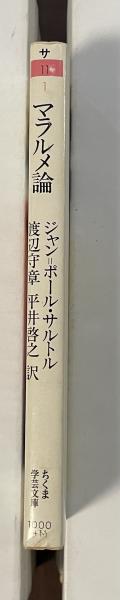 サ
11
1
マラルメ論
ジャン=ポール・サルトル
渡辺守章 平井啓之 訳
ちくま
学芸文庫
1000